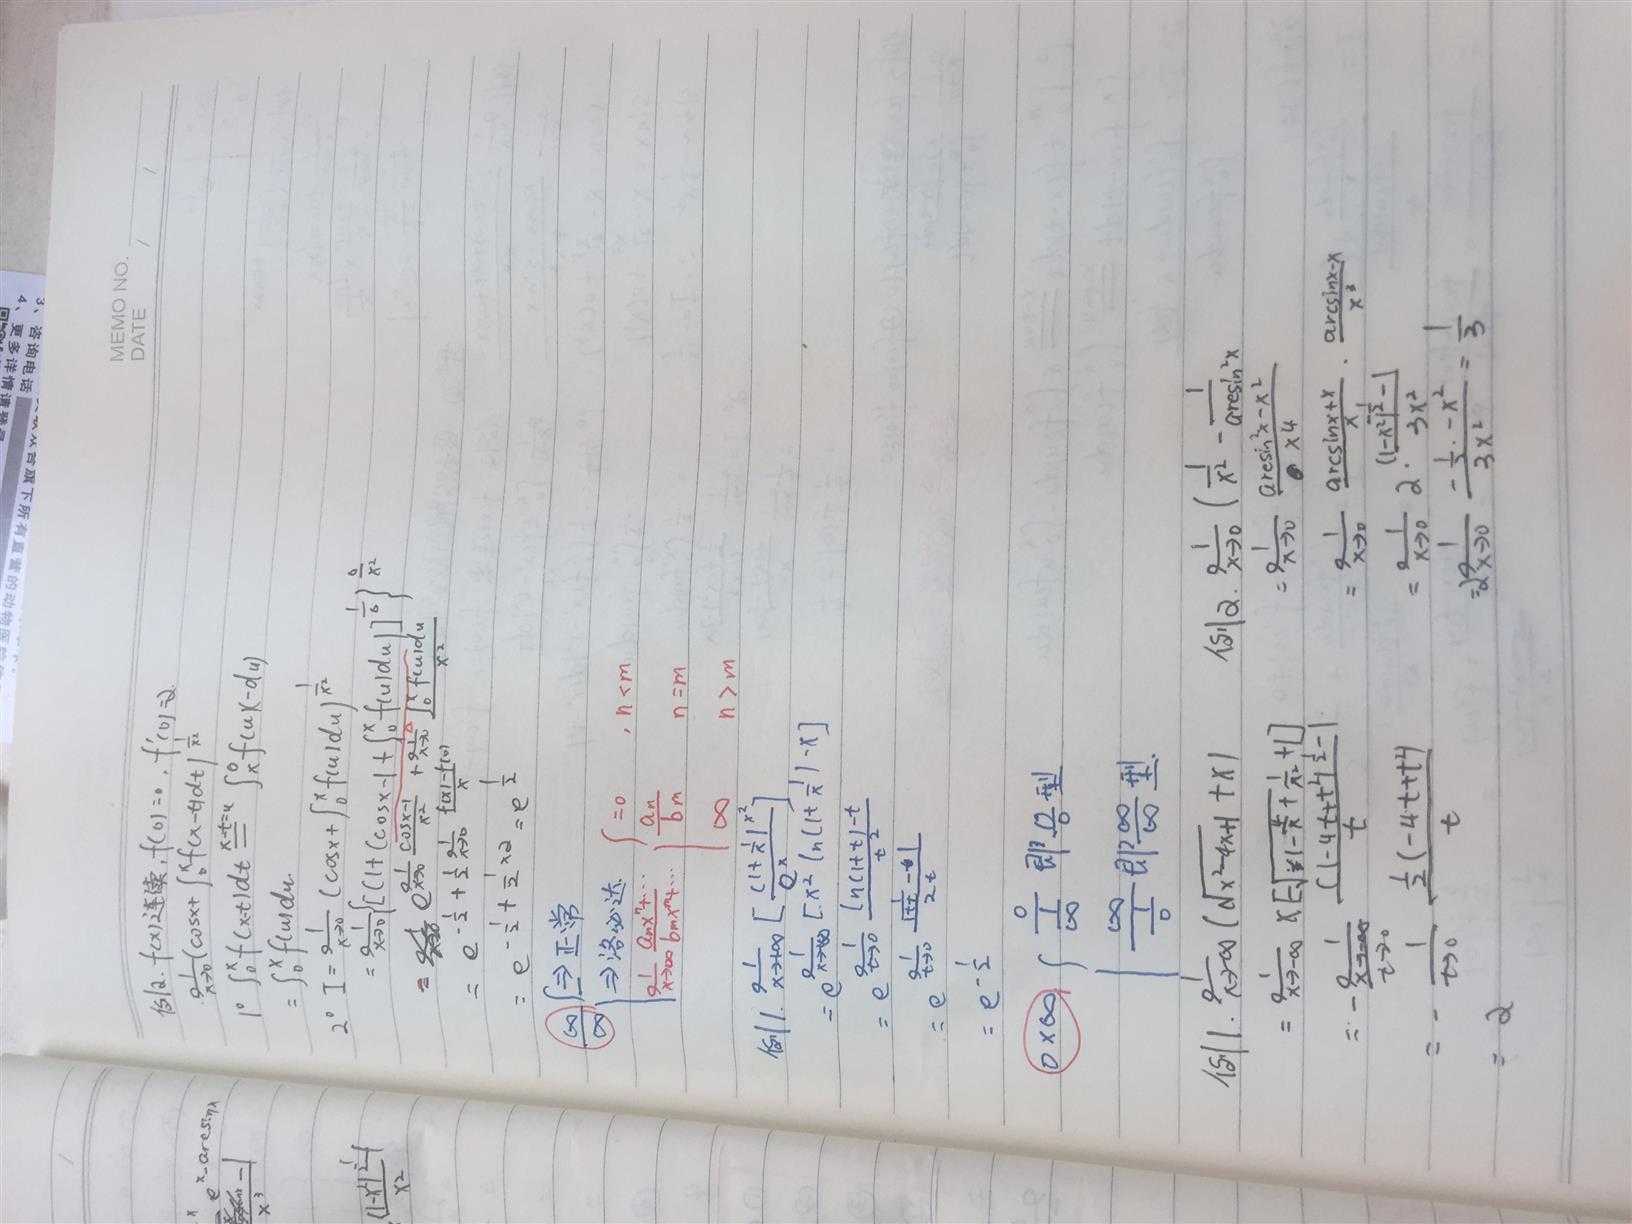 MEMO NO.
DATE / /
例2. f(x)连续, f(0)=0, f'(0)=2.
lim x→0 (cosx+∫₀ˣf(x-t)dt)^(1/x²)
1° ∫₀ˣf(x-t)dt x-t=u ∫ₓ⁰f(u)(-du)
=∫₀ˣf(u)du.
2° I=lim x→0 (cosx+∫₀ˣf(u)du)^(1/x²)
=lim x→0 {[1+(cosx-1+∫₀ˣf(u)du)]
= e^(lim x→0 (cosx-1)/x² + lim x→0 ∫₀ˣf(u)du/x²)
= e^(-1/2+1/2 lim x→0 (f(x)-f(0))/x)
= e^(-1/2+1/2×2) = e^(1/2)
∞/∞ {⇒正常
⇒洛必达.
lim x→∞ (aₙxⁿ+…)/(bₘxᵐ+…) { =0 , n<m
aₙ/bₘ n=m
∞ n>m
例1. lim x→+∞ [(1+1/x)^(x²)/eˣ]
=e^(lim x→+∞ [x²ln(1+1/x)-x]
= e^(lim t→0 (ln(1+t)-t)/t²)
= e^(lim t→0 (1/(1+t)-1)/2t)
= e^(-1/2)
0×∞ { 0/(1/∞) 即0/0型
∞/(1/0) 即∞/∞型.
例1. lim x→-∞ (√(x²-4x+1)+x)
=lim x→-∞ x[-√(1-4/x+1/x²)+1]
=-lim t→0 ((1-4t+t²)^(1/2)-1)/t
=-lim t→0 (1/2(-4t+t²))/t
= 2
例2. lim x→0 (1/x² - 1/arcsin²x)
=lim x→0 (arcsin²x-x²)/x⁴
=lim x→0 (arcsinx+x)/x · (arcsinx-x)/x³
=lim x→0 2·((1-x²)^(-1/2)-1)/3x²
=2lim x→0 (-1/2·-x²)/3x² = 1/3